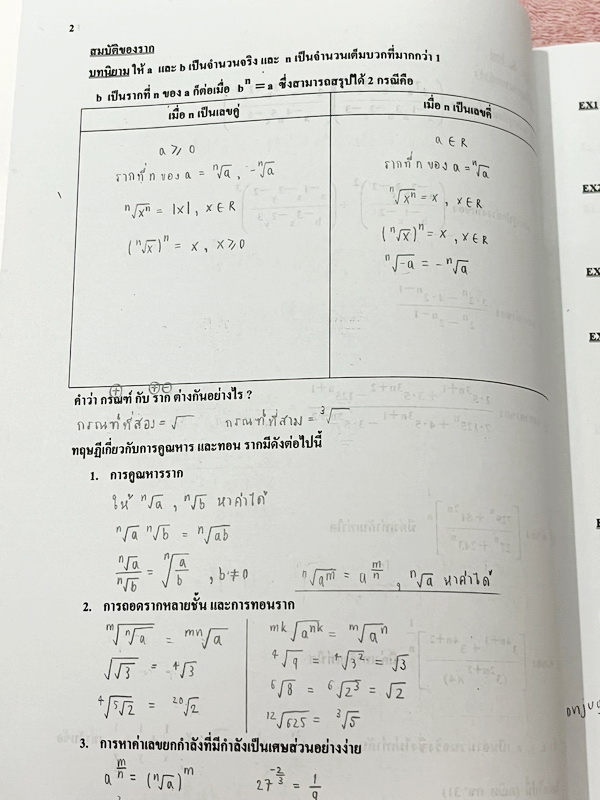 2
สมบัติของราก
บทนิยาม ให้ a และ b เป็นจำนวนจริง และ n เป็นจำนวนเต็มบวกที่มากกว่า 1
b เป็นรากที่ n ของ a ก็ต่อเมื่อ bⁿ = a ซึ่งสามารถสรุปได้ 2 กรณีคือ
เมื่อ n เป็นเลขคู่
a ≥ 0
รากที่ n ของ a = ⁿ√a, -ⁿ√a
ⁿ√xⁿ = |x|, x ∈ R
(ⁿ√x)ⁿ = x, x ≥ 0
เมื่อ n เป็นเลขคี่
a ∈ R
รากที่ n ของ a = ⁿ√a
ⁿ√xⁿ = x, x ∈ R
(ⁿ√x)ⁿ = x, x ∈ R
ⁿ√-a = -ⁿ√a
⊕ ⊕⊖
คำว่า กรณฑ์ กับ ราก ต่างกันอย่างไร ?
กรณฑ์ที่สอง = √ กรณฑ์ที่สาม = ³√
ทฤษฎีเกี่ยวกับการคูณหาร และทอน รากมีดังต่อไปนี้
1. การคูณหารราก
ให้ ⁿ√a, ⁿ√b หาค่าได้
ⁿ√a ⁿ√b = ⁿ√ab
ⁿ√a/ⁿ√b = ⁿ√(a/b), b ≠ 0 ⁿ√aᵐ = a^(m/n), ⁿ√a หาค่าได้
2. การถอดรากหลายชั้น และการทอนราก
ᵐ√ⁿ√a = ᵐⁿ√a
√√3 = ⁴√3
⁴√⁵√2 = ²⁰√2
ᵐᵏ√aⁿᵏ = ᵐ√aⁿ
⁴√9 = ⁴√3² = √3
⁶√8 = ⁶√2³ = √2
¹²√625 = ³√5
3. การหาค่าเลขยกกำลังที่มีกำลังเป็นเศษส่วนอย่างง่าย
a^(m/n) = (ⁿ√a)ᵐ 27^(-2/3) = 1/9
EX1
EX2